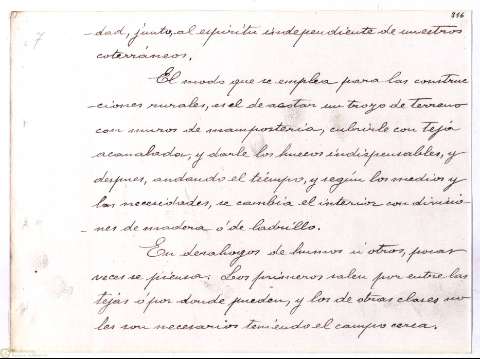 216
-dad, junto, al espíritu independiente de nuestros
coterráneos.
El modo que se emplea para las construc-
-ciones rurales, es el de acotar un trozo de terreno
con muros de mampostería, cubrirle con teja
acanalada, y darle los huecos indispensables, y
despues, andando el tiempo, y según los medios y
las necesidades, se cambia el interior con divisio-
-nes de madera ó de ladrillo.
En desahogos de humos ú otros, pocas
veces se piensa. Los primeros salen por entre las
tejas ó por donde pueden, y los de otras clases no
les son necesarios teniendo el campo cerca.